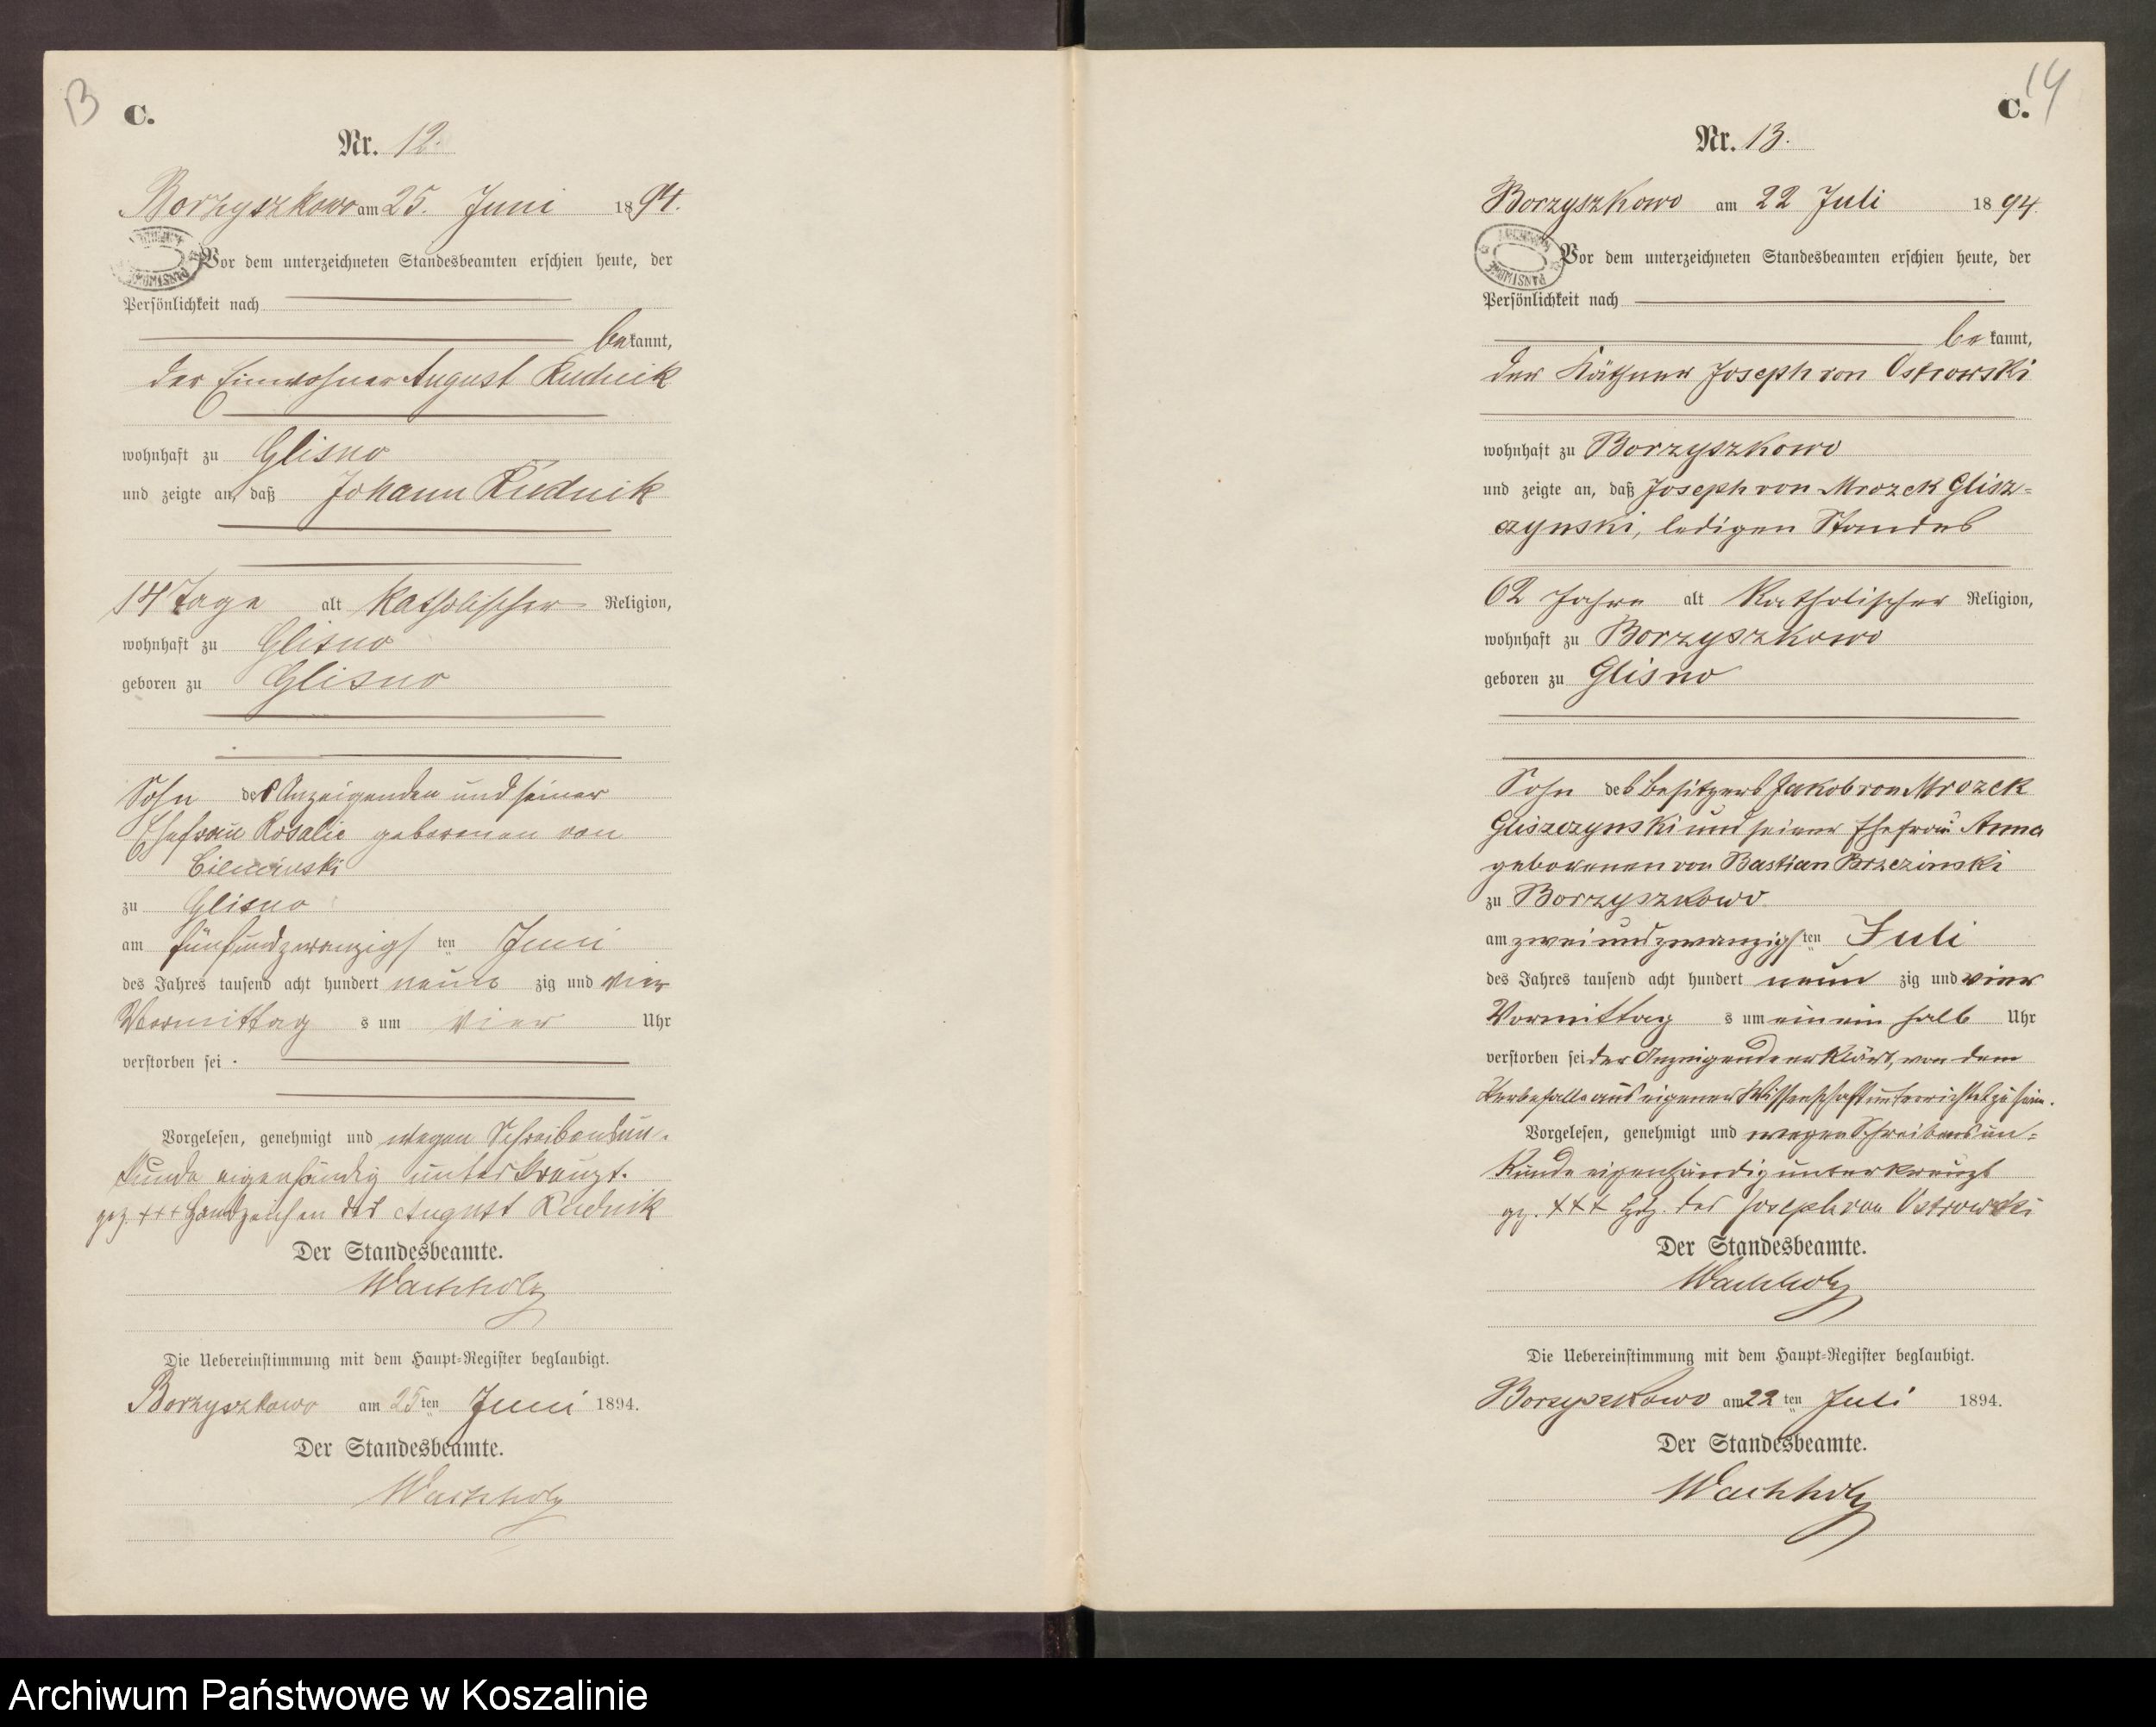 13
C.
Nr. 12.
Borzyszkowo am 25. Juni 1894.
Vor dem unterzeichneten Standesbeamten erschien heute, der
Persönlichkeit nach
bekannt,
der Einwohner August Rudnik
wohnhaft zu Glisno
und zeigte an, daß Johann Rudnik
14 Tage alt katholischer Religion,
wohnhaft zu Glisno
geboren zu Glisno
Sohn des Anzeigenden und seiner
Ehefrau Rosalie geborenen von
zu Glisno
am fünfundzwanzigsten Juni
des Jahres tausend acht hundert neunzig und vier
Vormittags um vier Uhr
verstorben sei.
Vorgelesen, genehmigt und wegen Schreibensun-
kunde eigenhändig unterkreuzt.
gez. +++ Handzeichen des August Rudnik
Der Standesbeamte.
Wachholz
Die Uebereinstimmung mit dem Haupt-Register beglaubigt.
Borzyszkowo am 25ten Juni 1894.
Der Standesbeamte.
Wachholz
14
C.
Nr. 13.
Borzyszkowo am 22 Juli 1894.
Vor dem unterzeichneten Standesbeamten erschien heute, der
Persönlichkeit nach
bekannt,
der Käthner Joseph von Ostrowski
wohnhaft zu Borzyszkowo
und zeigte an, daß Joseph von Mrozek Glisz-
czynski, ledigen Standes
62 Jahre alt katholischer Religion,
wohnhaft zu Borzyszkowo
geboren zu Glisno
Sohn des Besitzers Jakob von Mrozek
Gliszczynski und seiner Ehefrau Anna
geborenen von Bastian Brzezinski
zu Borzyszkowo
am zweiundzwanzigsten Juli
des Jahres tausend acht hundert neunzig und vier
Vormittags um ein ein halb Uhr
verstorben sei der Anzeigende erklärt, von dem
Sterbefalle aus eigener Wissenschaft unterrichtet zu sein.
Vorgelesen, genehmigt und wegen Schreibensun-
kunde eigenhändig unterkreuzt
gez. +++ Hdz. des Joseph von Ostrowski
Der Standesbeamte.
Wachholz
Die Uebereinstimmung mit dem Haupt-Register beglaubigt.
Borzyszkowo am 22ten Juli 1894.
Der Standesbeamte.
Wachholz
Archiwum Państwowe w Koszalinie